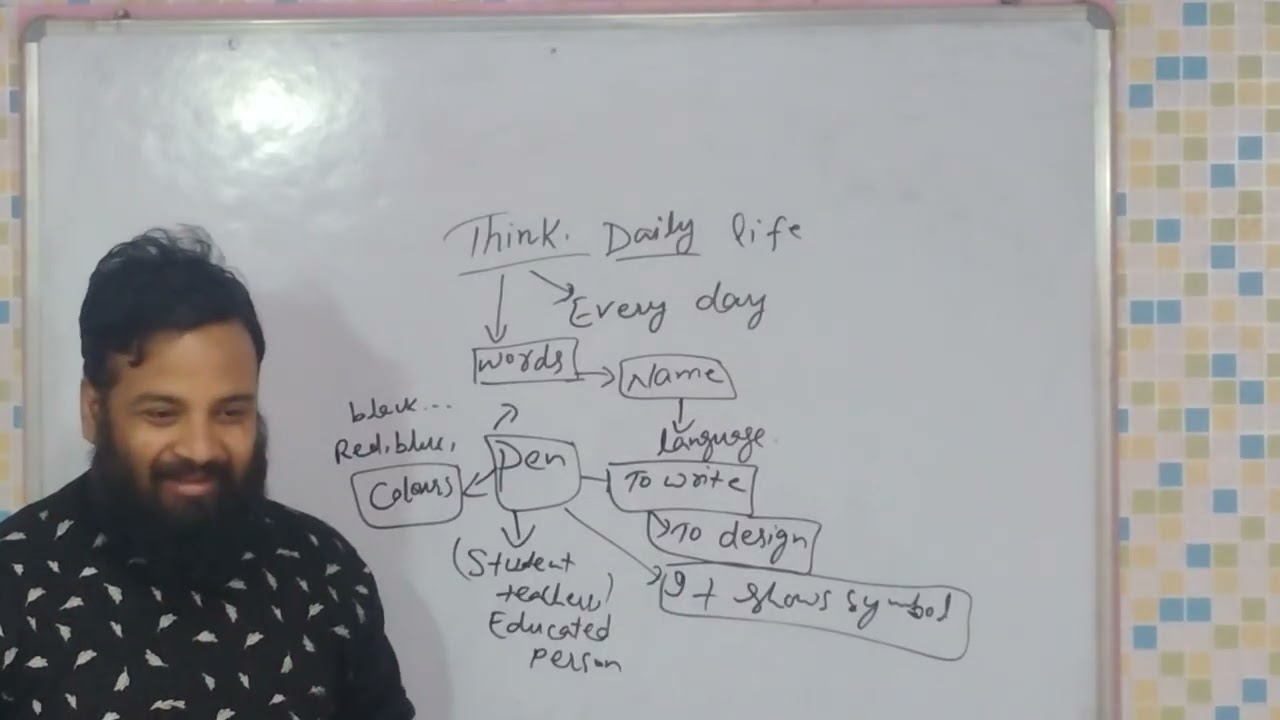 Think. Daily life
Every day
words
Name
language
black...
Red, blue,
Colours
Pen
To write
To design
It shows symbol
(Student
teacher)
Educated
person